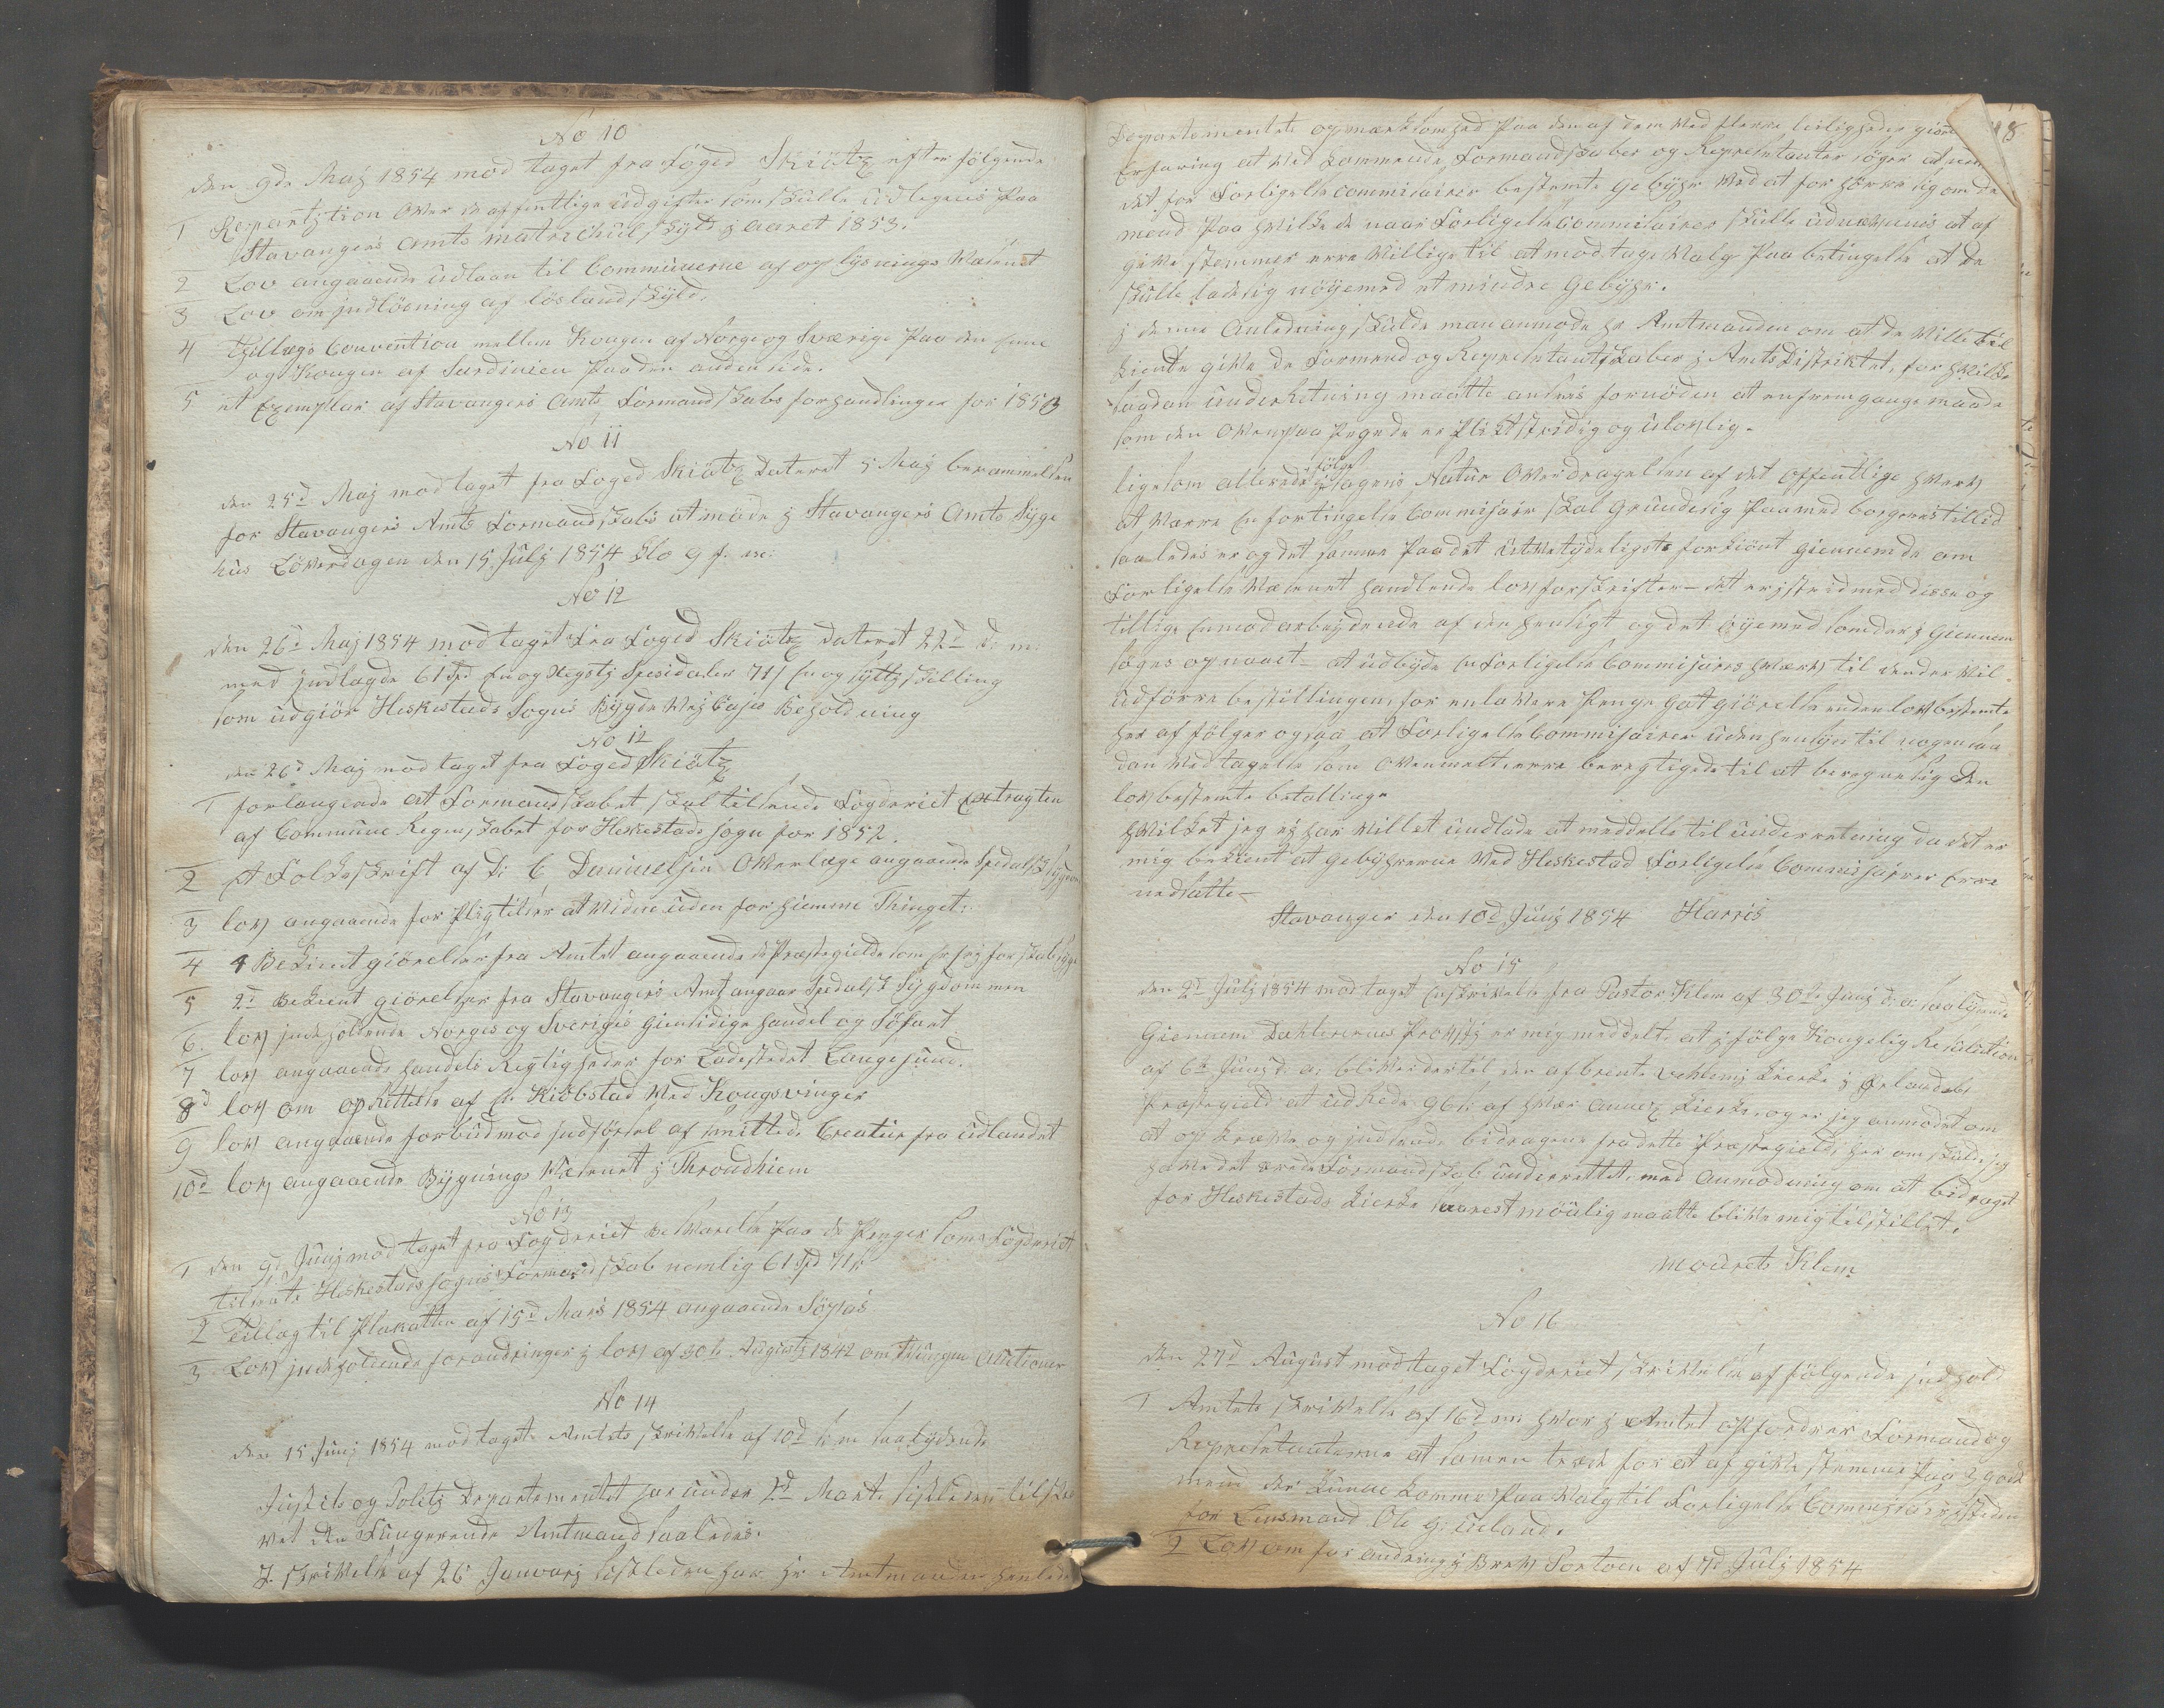 No 10
den 9de Maj 1854 mod taget fra Foged Skiötz efter följgende
1 Repartition over de offentlige Udgifter som skulle Udlegnes Paa
Stavangers Amts matrikkul skyld j Aaret 1853.
2 Lov angaaende Udlaan til Communerne af oplysnings Wæsenet
3 Lov om jndlösning af lösland skyld.
4 Tillægs Convention mellem Kongen af Norge og Sverige Paa den Ene
og Kongen af Sardinien Paa den anden side.
5 et Exemplar af Stavangers Amts Formandskabs forhandlinger for 1853
No 11
den 25d Maj mod taget fra Foged Skiötz Dateret 5 Maj berammelsen
for Stavangers Amts Formandskabs at möde j Stavangers Amts Syge
hus Löverdagen den 15 Julj 1854 Klo 9 f. m:
No 12
den 26d Maj 1854 mod taget fra Foged Skiötz dateret 22d d: m:
med jndlagde 61 Spd En og Segstj Spesidaler 71 s En og sÿttj skilling
som Udgiör Heskestads Sogns Bÿgde Wej Casses Beholdning
No 12
den 26d Maj mod taget fra Foged Skiötz
1 forlangende at Formandskabet skal tilsende Fogderiet Extragten
af Commune Regnskabet for Heskestads sogn for 1852.
2 Et Folkeskrift af D: C Danielsen Overlæge angaaende Spedalsk sÿgdom
3 lov angaaende for Pligtelser at Vidne Uden for hiemme Thinget:
4 4 Bekient giörelser fra Amtet angaaende de Præstegielde som Er frj for skabsyge
5 2d Bekient giörelser fra Stavangers Amt angaar Spedalsk Sÿgdommen
6. lov jndeholdende Norges og Sverigis Giensidige handel og Söfart
7 lov angaaende handels Regtigheder for Ladestedet Langesund.
8d lov om oprettelse af En Kiöbstad Ved Kongsvinger
9 lov angaaende forbud mod jndförsel af smittede Creatur fra Udlandet
10d lov angaaende Bÿgnings Wæsenet j Throndhiem
No 13
1 den 9d Junj mod taget fra Fogderiet Bevarelse for de Penger som Fogderiet
tilsente Heskestads sogns Formandskab nemlig 61 Spd 71 s:
2 Tillæg til Plakatten af 15d Mars 1854 angaaende Söpas
3 Lov jndeholdende forandringer j lov af 30te Augustj 1842 om Tvungne Auctioner
No 14
den 15 Junj 1854 mod taget Amtets skrivelse af 10d h: m: saalydende
Justits og Politj Departementet har under 2d Marts sistleden tilskre
vet den Fungerende Amtmand saaledes.
J skrivelse af 26 Januarj sistleden har Hr Amtmanden henledet
18
Departementets opmærksomhed Paa den af dem ved flerre leiligheder giorte
Erfaring at Ved kommende Formandskaber og Represetanter söger at
det for Forligelse commissairer bestemte Gebÿhr Ved at for hörre sig om de
mend Paa hvilke de naar Forligelse Commissairer skulle Udnævnes at af
give stemmer erre Villige til at mod tage Valg Paa betingelse at de
skulle lade sig nöÿe med et mindre Gebÿhr.
j denne Anledning skulde man anmode Hr Amtmanden om at de Ville til
kiente give de Formend og Represetantskaber j Amts Distriktet, for hvilke
saadan Underretning maatte ansees fornöden at en fremgangs maade
som den Ovenpaa Pegede er Pligtstridig og Ulovlig.
ligesom allerede j fölge sagens Natur Overdragelsen af det offentlige hverv
at Være En forligelse Commissair skal Grunde sig Paa med borgeres tillid
saaledes er og det samme Paa det Utvetÿdeligste forkiönt giennem de om
Forligelse Wæsenet handlende lov forskrifter – det er j strid med disse og
tillige Enmodarbejdende af den hensigt og det öÿemed som der j Giennem
söges opnaaet – at Udbÿde En Forligelse Commissairs hverv til den der vil
Udförre bestillingen, for en lavere Penge godtgiörelse enden lovbestemte
her af fölger ogsaa at Forligelse Commissairer Uden hensÿn til nogen saa
dan Vedtagelse som Ovenmelt, erre beregtigede til at beregne sig den
lovbestemte betallinge
hvilket jeg ej har Villet Undlade at meddelle til Underretning da det er
mig bekient at Gebÿhrerne Ved Heskestad Forligelse Commissairer Erre
nedsatte –
Stavanger den 10d Junj 1854 Harris
No 15
den 2d Julj 1854 mod taget En skrivelse fra Pastor Klem af 30te Junj d: a: saalÿdende
Giennem Dahlernes Provstj er mig meddelt. at j fölge Kongelig Resolution
af 6te Junj d: a: bliver der til den afbrente Kierke j Örlandets
Præstegield at Udrede 96 s: af hver Annex kierke. og er jeg anmodet om
at op kræve og jndsende bidragene fra dette Præstegield. her om skulde jeg
have det ærede Formandskab Underrettet, med Anmodning om at bidraget
for Heskestads kierke snarest möulig maatte blive mig tilstillet.
Mourets Klem
No 16
den 27d August mod taget Fogderiet skrivelse af fölgende jndhold
1 Amtets skrivelse af 16d m: hvor j Amtet opfordrer Formand og
Represetanterne at samen træde for at af give stemme Paa 3 gode
mend der kunne komme Paa Valg til Forligelse Commissair jsteden
for Lensmand Ole G. Ueland.
2 Lov om forandring j Brev Portoen af 7d Julj 1854